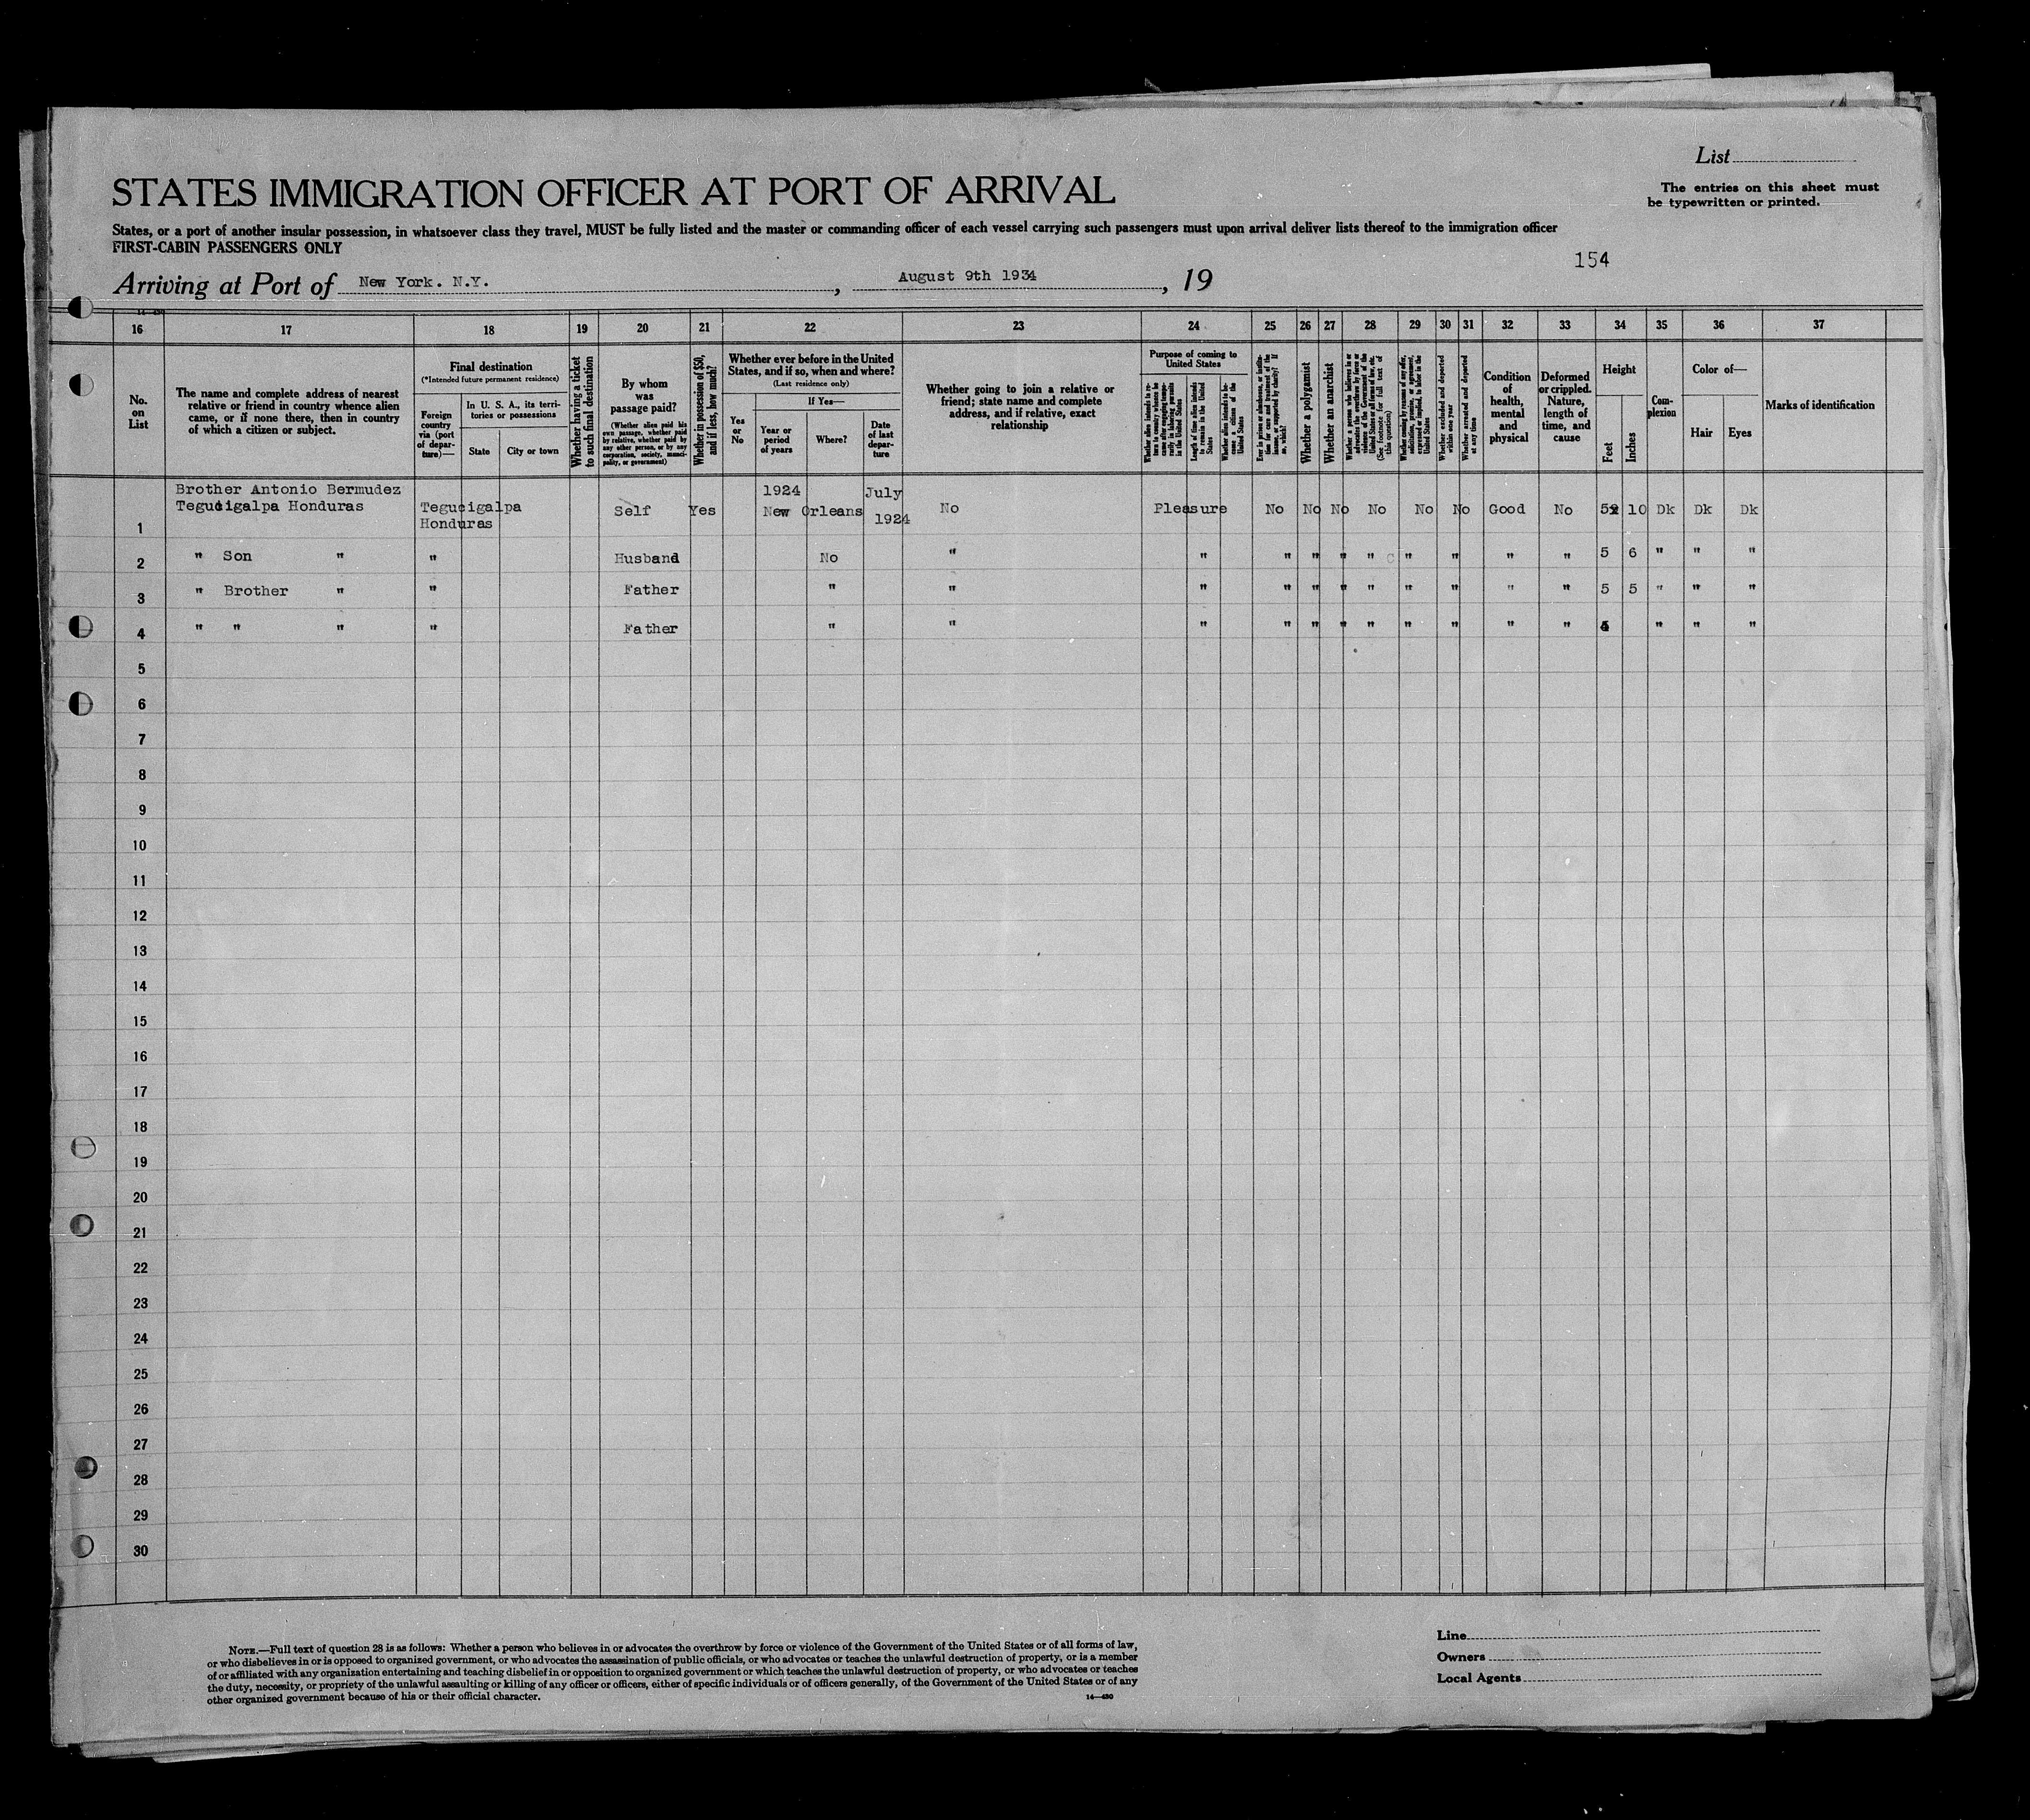 List
STATES IMMIGRATION OFFICER AT PORT OF ARRIVAL
The entries on this sheet must
be typewritten or printed.
States, or a port of another insular possession, in whatsoever class they travel, MUST be fully listed and the master or commanding officer of each vessel carrying such passengers must upon arrival deliver lists thereof to the immigration officer
FIRST-CABIN PASSENGERS ONLY
154
Arriving at Port of New York. N.Y. , August 9th 1934 , 19
16 17 18 19 20 21 22 23 24 25 26 27 28 29 30 31 32 33 34 35 36 37
No.
on
List
The name and complete address of nearest
relative or friend in country whence alien
came, or if none there, then in country
of which a citizen or subject.
Final destination
(*Intended future permanent residence)
Foreign
country
via (port
of depar-
ture)—
In U. S. A., its terri-
tories or possessions
State
City or town
Whether having a ticket
to such final destination
By whom
was
passage paid?
(Whether alien paid his
own passage, whether paid
by relative, whether paid by
any other person, or by any
corporation, society, munici-
pality, or government)
Whether in possession of $50,
and if less, how much?
Whether ever before in the United
States, and if so, when and where?
(Last residence only)
Yes
or
No
If Yes—
Year or
period
of years
Where?
Date
of last
depar-
ture
Whether going to join a relative or
friend; state name and complete
address, and if relative, exact
relationship
Purpose of coming to
United States
Length of time alien intends
to remain in the United
States
Whether alien intends to be-
come a citizen of the
United States
Whether a polygamist
Whether an anarchist
Whether excluded and deported
within one year
Whether arrested and deported
at any time
Condition
of
health,
mental
and
physical
Deformed
or crippled.
Nature,
length of
time, and
cause
Height
Feet
Inches
Com-
plexion
Color of—
Hair
Eyes
Marks of identification
Brother Antonio Bermudez 1924 July
1 Tegucigalpa Honduras Tegucigalpa Self Yes New Orleans 1924 No Pleasure No No No No No No Good No 5 10 Dk Dk Dk
Honduras
2 " Son " " Husband No " " " " " " " " " " 5 6 " " "
3 " Brother " " Father " " " " " " " " " " " 5 5 " " "
4 " " " " Father " " " " " " " " " " " " " "
5
6
7
8
9
10
11
12
13
14
15
16
17
18
19
20
21
22
23
24
25
26
27
28
29
30
NOTE.—Full text of question 28 is as follows: Whether a person who believes in or advocates the overthrow by force or violence of the Government of the United States or of all forms of law,
or who disbelieves in or is opposed to organized government, or who advocates the assassination of public officials, or who advocates or teaches the unlawful destruction of property, or is a member
of or affiliated with any organization entertaining and teaching disbelief in or opposition to organized government or which teaches the unlawful destruction of property, or who advocates or teaches
the duty, necessity, or propriety of the unlawful assaulting or killing of any officer or officers, either of specific individuals or of officers generally, of the Government of the United States or of any
other organized government because of his or their official character.
14—480
Line
Owners
Local Agents